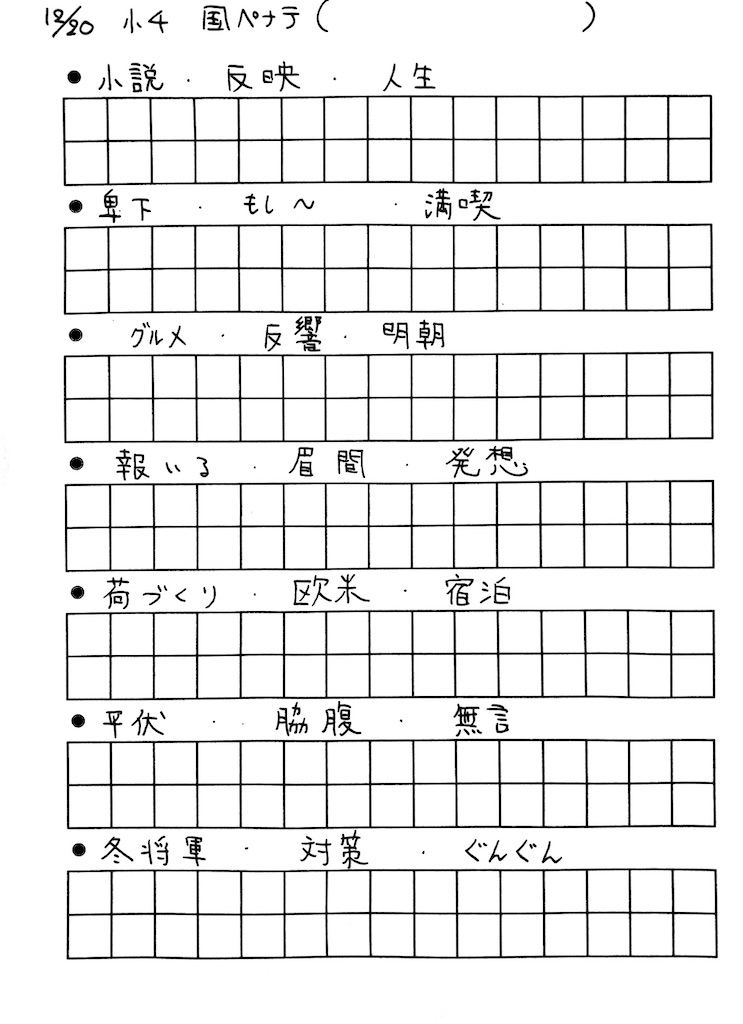 12/20 小4 国ペナテ( )
● 小説 ・ 反映 ・ 人生
● 卑下 ・ もし〜 ・ 満喫
● グルメ ・ 反響 ・ 明朝
● 報いる ・ 眉間 ・ 発想
● 荷づくり ・ 欧米 ・ 宿泊
● 平伏 ・ 脇腹 ・ 無言
● 冬将軍 ・ 対策 ・ ぐんぐん